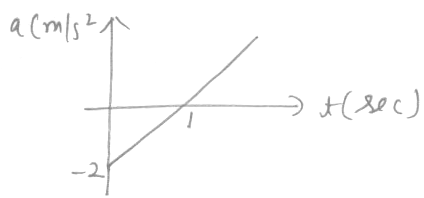 a(m/s²
t(sec)
1
-2